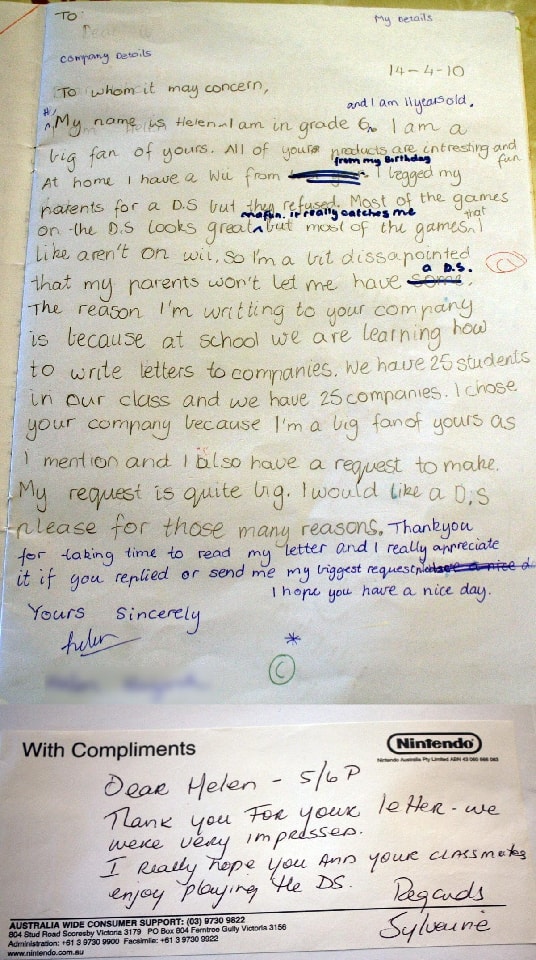 To
My Details
Company Details
14-4-10
To whom it may concern,
and I am 11 years old.
My name is Helen. I am in grade 6. I am a
big fan of yours. All of yours products are intresting and
fun
from my Birthday
At home I have a Wii from I begged my
parents for a D.S but they refused. Most of the games
it really catches me
on the D.S looks great but most of the games that I
like aren't on wii. So I'm a bit dissapointed
a D.S.
that my parents won't let me have some.
The reason I'm writting to your company
is because at school we are learning how
to write letters to companies. We have 25 students
in our class and we have 25 companies. I chose
your company because I'm a big fan of yours as
I mention and I also have a request to make.
My request is quite big. I would like a D.S
please for those many reasons. Thankyou
for taking time to read my letter and I really appreciate
it if you replied or send me my biggest request.
I hope you have a nice day.
Yours Sincerely
helen
*
C
With Compliments
Nintendo
Nintendo Australia Pty Limited ABN 43 060 566 083
Dear Helen - 5/6P
Thank you for your letter - we
were very impressed.
I really hope you and your classmates
enjoy playing the DS.
Regards
Sylvaine
AUSTRALIA WIDE CONSUMER SUPPORT: (03) 9730 9822
804 Stud Road Scoresby Victoria 3179 PO Box 804 Ferntree Gully Victoria 3156
Administration: +61 3 9730 9900 Facsimile: +61 3 9730 9922
www.nintendo.com.au